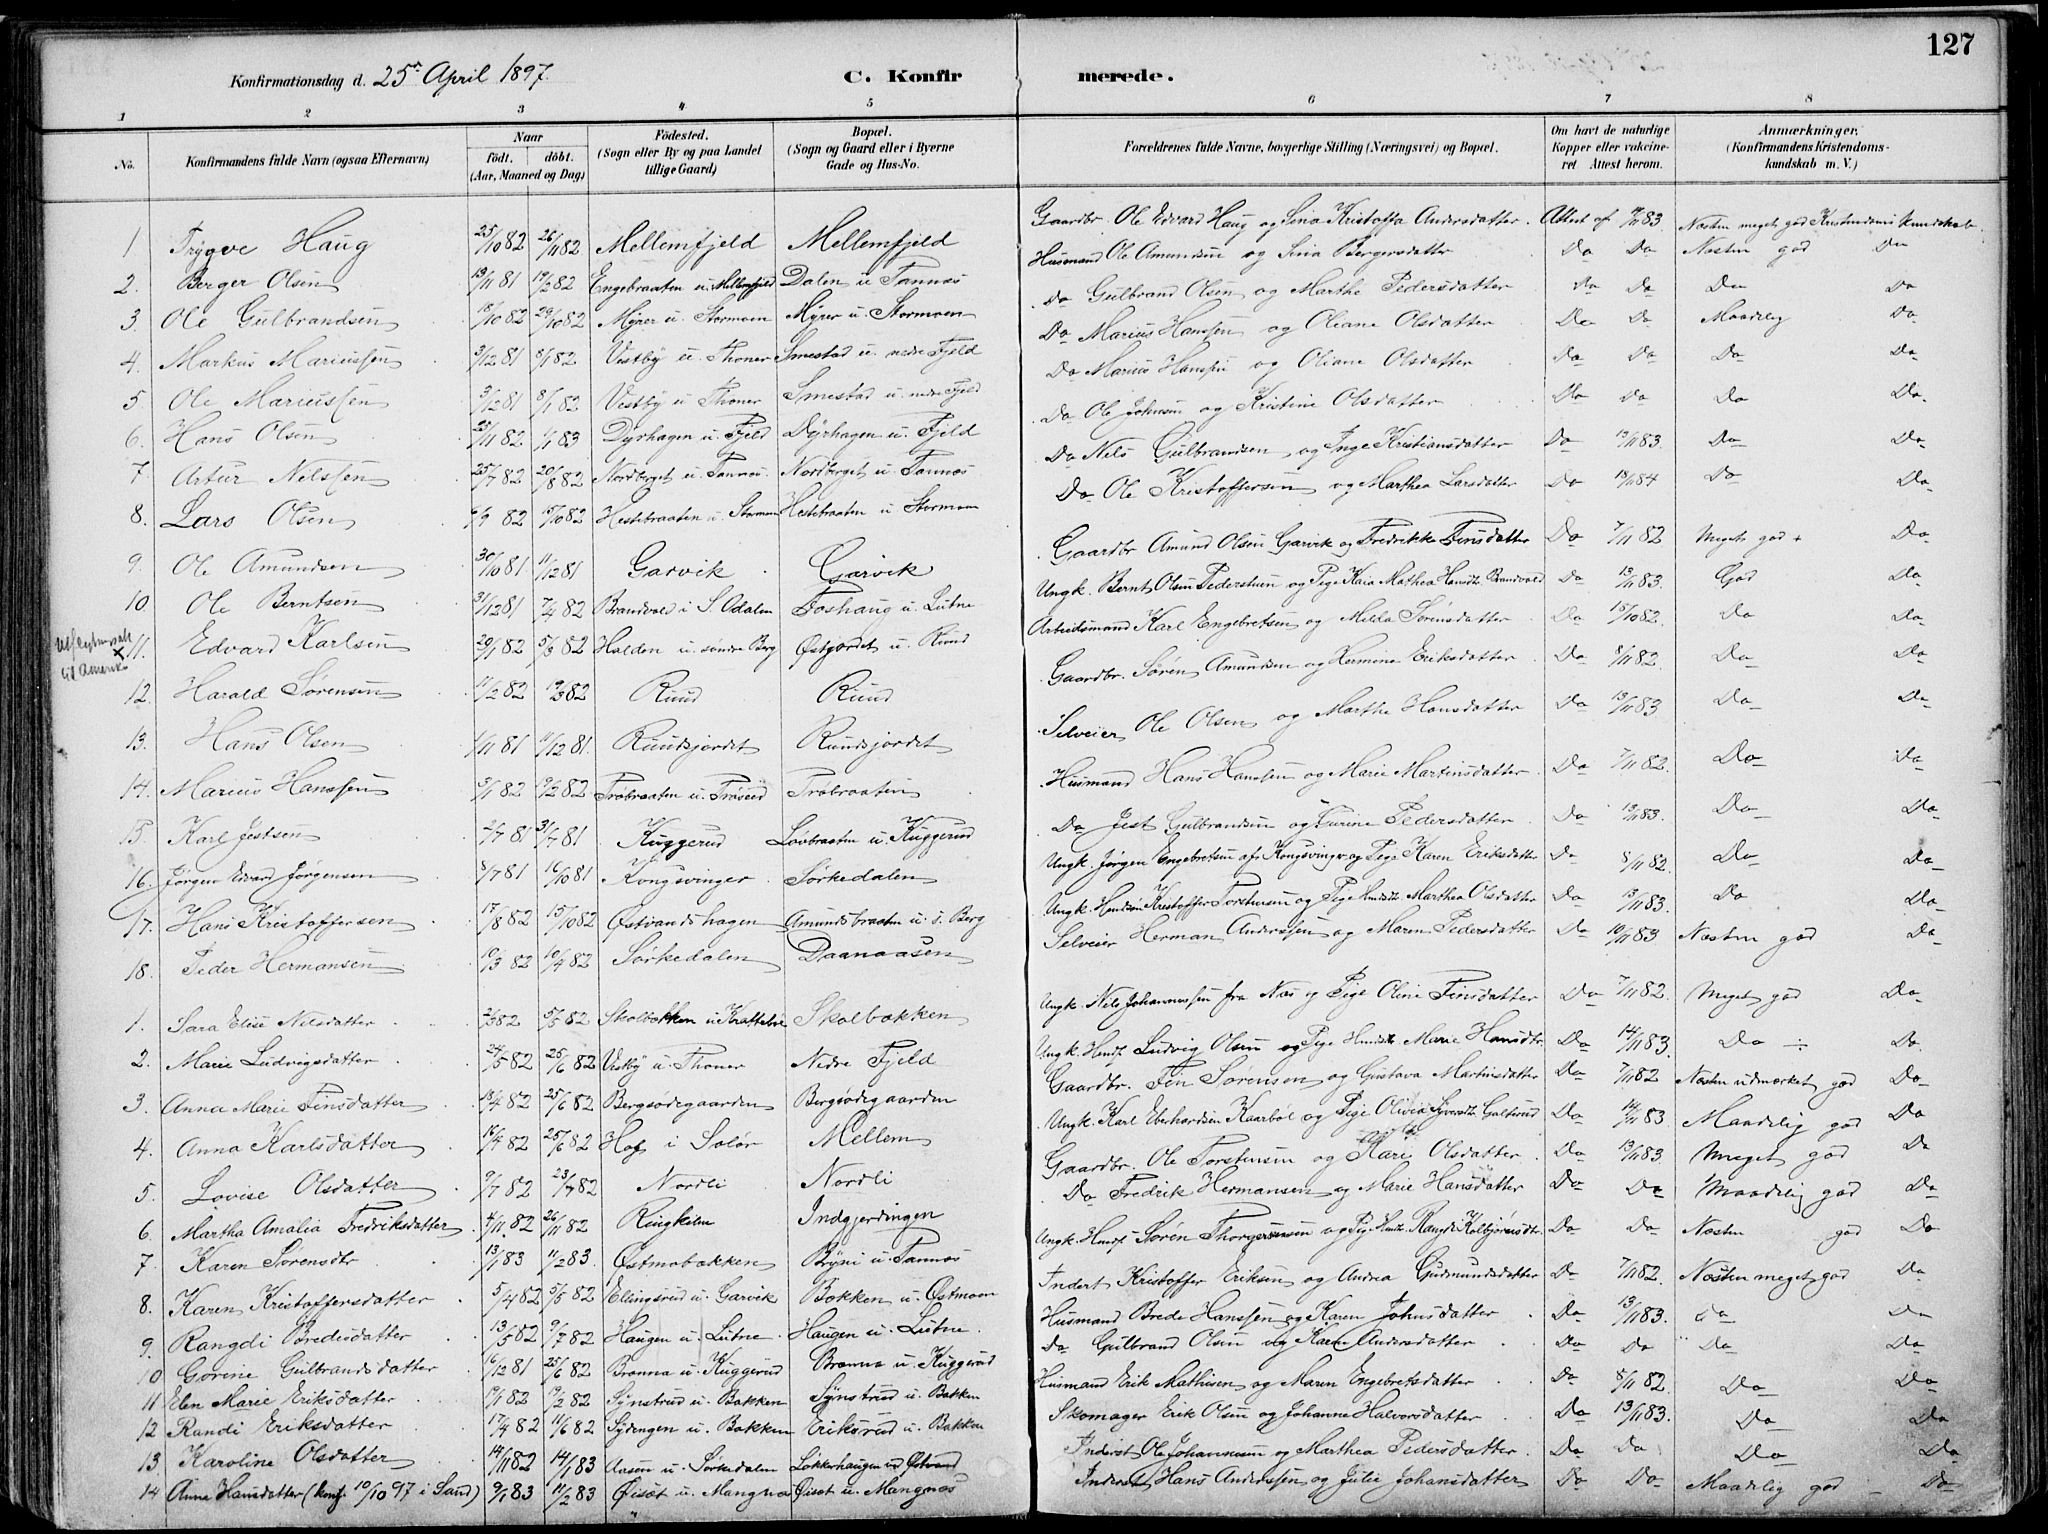 127
Konfirmationsdag d. 25de April 1897. C. Konfirmerede.
1 2 3 4 5 6 7 8
No. Konfirmandens fulde Navn (ogsaa Efternavn) Naar födt. döbt. (Aar, Maaned og Dag) Födested. (Sogn eller By og paa Landet tillige Gaard) Bopæl. (Sogn og Gaard eller i Byerne Gade og Hus-No. Forældrenes fulde Navne, borgerlige Stilling (Næringsvei) og Bopæl. Om havt de naturlige Kopper eller vakcineret Attest herom. Anmærkninger. (Konfirmandens Kristendomskundskab m. V.)
1 Trygve Haug 25/10 82 26/11 82 Mellemfjeld Mellemfjeld Gaardbr. Ole Edvard Haug og Sina Kristoffa Andersdatter. Attest af 83 Næsten meget god Kristendoms Kundskab
2. Berger Olsen 13/11 81 19/2 82 Engebraaten u. Mellemfjeld Dalen u. Tannæs Husmand Ole Amundsen og Sina Bergersdatter Do Do Næsten god Do
3. Ole Gulbrandsen 18/10 82 29/10 82 Myrer u. Stormoen Myrer u. Stormoen Do Gulbrand Olsen og Marthe Pedersdatter Do Do Do Do
4. Markus Mariussen 3/12 81 8/1 82 Vestby u. Thoner Smestad u. nedre Fjeld Do Marius Hanssen og Oliane Olsdatter Do Do Maadelig Do
5. Ole Mariussen 3/12 81 8/1 82 Vestby u Thoner Smestad u. nedre Fjeld Do Marius Hanssen og Oliane Olsdatter Do Do Do Do
6. Hans Olsen 23/11 82 1/1 83 Dyrhagen u. Fjeld Dyrhagen u. Fjeld Do Ole Johnsen og Kristine Olsdatter Do Do Do Do
7 Artur Nelssen 25/7 82 20/8 82 Nordberget u. Tannæs. Nordberget u. Tannæs Do Nels Gulbrandsen og Inge Kristiansdatter Do 13/11 83. Do Do
8. Lars Olsen 9/9 82 15/10 82 Hestebraaten u. Stormoen Hestebraaten u. Stormoen Do Ole Kristoffersen og Marthea Larsdatter Do 84 Do Do
9. Ole Amundsen 30/10 81 11/12 81 Garvik Garvik Gaardbr Amund Olsen Garvik og Fredrikke Finsdatter Do 7/11 82 Meget god + Do
10. Ole Berntsen 31/12 81 7/4 82 Brandvold i S. Odalen Foshaug u. Lutne Ungk. Bernt Olsen Pederstuen og Pige Kaia Mathea Hansdtr Brandvold Do 13/11 83. God Do
til Amerika
11. Edvard Karlsen 29/1 82 5/3 82 Holden u. søndre Berg Østgordet u. Ruud Arbeidsmand Karl Engebretsen og Milda Sørensdatter Do 15/10 82. Do Do
12. Harald Sørensen 11/2 82 19/3 82 Ruud Ruud Gaardbr. Søren Amundsen og Hermine Eriksdatter. Do 8/11 82. Do Do
13. Hans Olsen 1/11 81 11/12 81. Ruudsjordet Ruudsjordet Selveier Ole Olsen og Marthe Hansdatter Do 13/11 83 Do Do
14. Marius Hanssen 3/1 82 19/2 82 Trøbraaten u. Trøseid Trøbraaten Husmand Hans Hanssen og Marie Martinsdatter. Do 7/11 82. Do Do
15 Karl Jestsen 2/7 81 31/7 81 Kuggerud Løvbraaten u. Kuggerud Do Jest Gulbrandsen og Turine Pedersdatter. Do 13/11 83. Do Do
16. Jörgen Edvard Jørgensen 8/7 81 16/10 81 Kongsvinger Sørkedalen Ungk. Jörgen Engebretsen af Kongsvinger og Pige Karen Eriksdatter Do 8/11 82. Do Do
17. Hans Kristoffersen 17/8 82 15/10 82 Østvandshagen Amundsbraaten u. s. Berg Ungk. Kristoffer Torstensen og Pige Marthea Olsdatter Do 13/11 83. Do Do
18. Peder Hermansen 19/3 82 10/4 82 Sørkedalen Daanaasen Selveier Herman Anderssen og Maren Pedersdatter Do 10/11 83 Næsten god Do
1. Sara Elise Nilsdatter 2/3 82 5/5 82 Skolbækken u Krattebøl Skolbækken Ungk. Nils Johannessen fra Næs og Pige Oline Finsdatter Do 7/11 82. Meget god Do
2. Marie Ludvigsdatter 24/5 82 25/6 82 Vestby u. Thoner Nedre Fjeld Ungk. Ludvig Olsen og Pige Marie Hansdtr. Do 14/11 83. Do ÷ Do
3. Anna Marie Finsdatter 13/4 82 25/6 82 Bergsødegaarden Bergsødegaarden Gaardbr. Fin Sørensen og Gustava Martinsdatter Do 7/11 82 Næsten udmærket god Do
4. Anna Karlsdatter 16/4 82 25/6 82 Hof i Solør Mellem Ungk. Karl Eberhardsen Kaarbøl og Pige Olivia Syversdtr Galterud Do 14/11 83 Maadelig god Do
5. Lovise Olsdatter 9/7 82 23/7 82 Nordli Nordli Gaardbr. Ole Torstensen og Kari Olsdatter. Do 13/11 83. Meget god Do
6. Martha Amalia Fredriksdatter 4/11 82 26/11 82 Ringholm Indgjerdingen Do Fredrik Hermansen og Marie Hansdatter Do Do Maadelig god Do
7. Karen Sørensdtr 13/1 83 11/2 83. Østmobækken Bryni u. Tannæs Ungk. Søren Thorgersen og Pige Rangdi Kolbjörnsdtr. Do Do Næsten god Do
8. Karen Kristoffersdatter 5/4 82 5/5 82 Ellingsrud u. Garvik Bækken u. Østmoen Inderst Kristoffer Eriksen og Andrea Gudmundsdatter Do 7/11 82. Næsten meget god Do
9. Rangdi Bredesdatter 13/5 82 9/7 82 Haugen u. Lutne Haugen u. Lutne Husmand Brede Hanssen og Karen Johnsdatter Do 13/11 83. Do Do
10 Gorene Gulbrandsdatter 16/12 81 25/6 82 Brønna u. Kuggerud Brønna u. Kuggerud Do Gulbrand Olsen og Karen Andersdatter Do Do Do Do
11 Elen Marie Eriksdatter 19/1 82 19/2 82 Synstrud u. Bakken Synstrud u. Bakken Husmand Erik Mathisen og Maren Engebretsdatter Do 8/11 82. Do Do
12 Randi Eriksdatter 17/4 82 11/6 82 Sydengen u. Bakken Eriksrud u. Bakken Skomager Erik Olsen og Johanne Halvorsdatter Do 13/11 83. Do Do
13. Karoline Olsdatter 14/11 82 14/1 83 Aasen u. Sørkedalen Løkkerhaugen ved Østvand Inderst Ole Johannessen og Marthea Pedersdatter. Do Do Do Do
14 Anne Hansdatter (konf. 10/10 97 i Sand) 9/1 83 11/2 83 Øisæt u. Mangnæs Øisæt u. Mangnæs Inderst Hans Anderssen og Julie Johansdatter Do Do Maadelig god Do